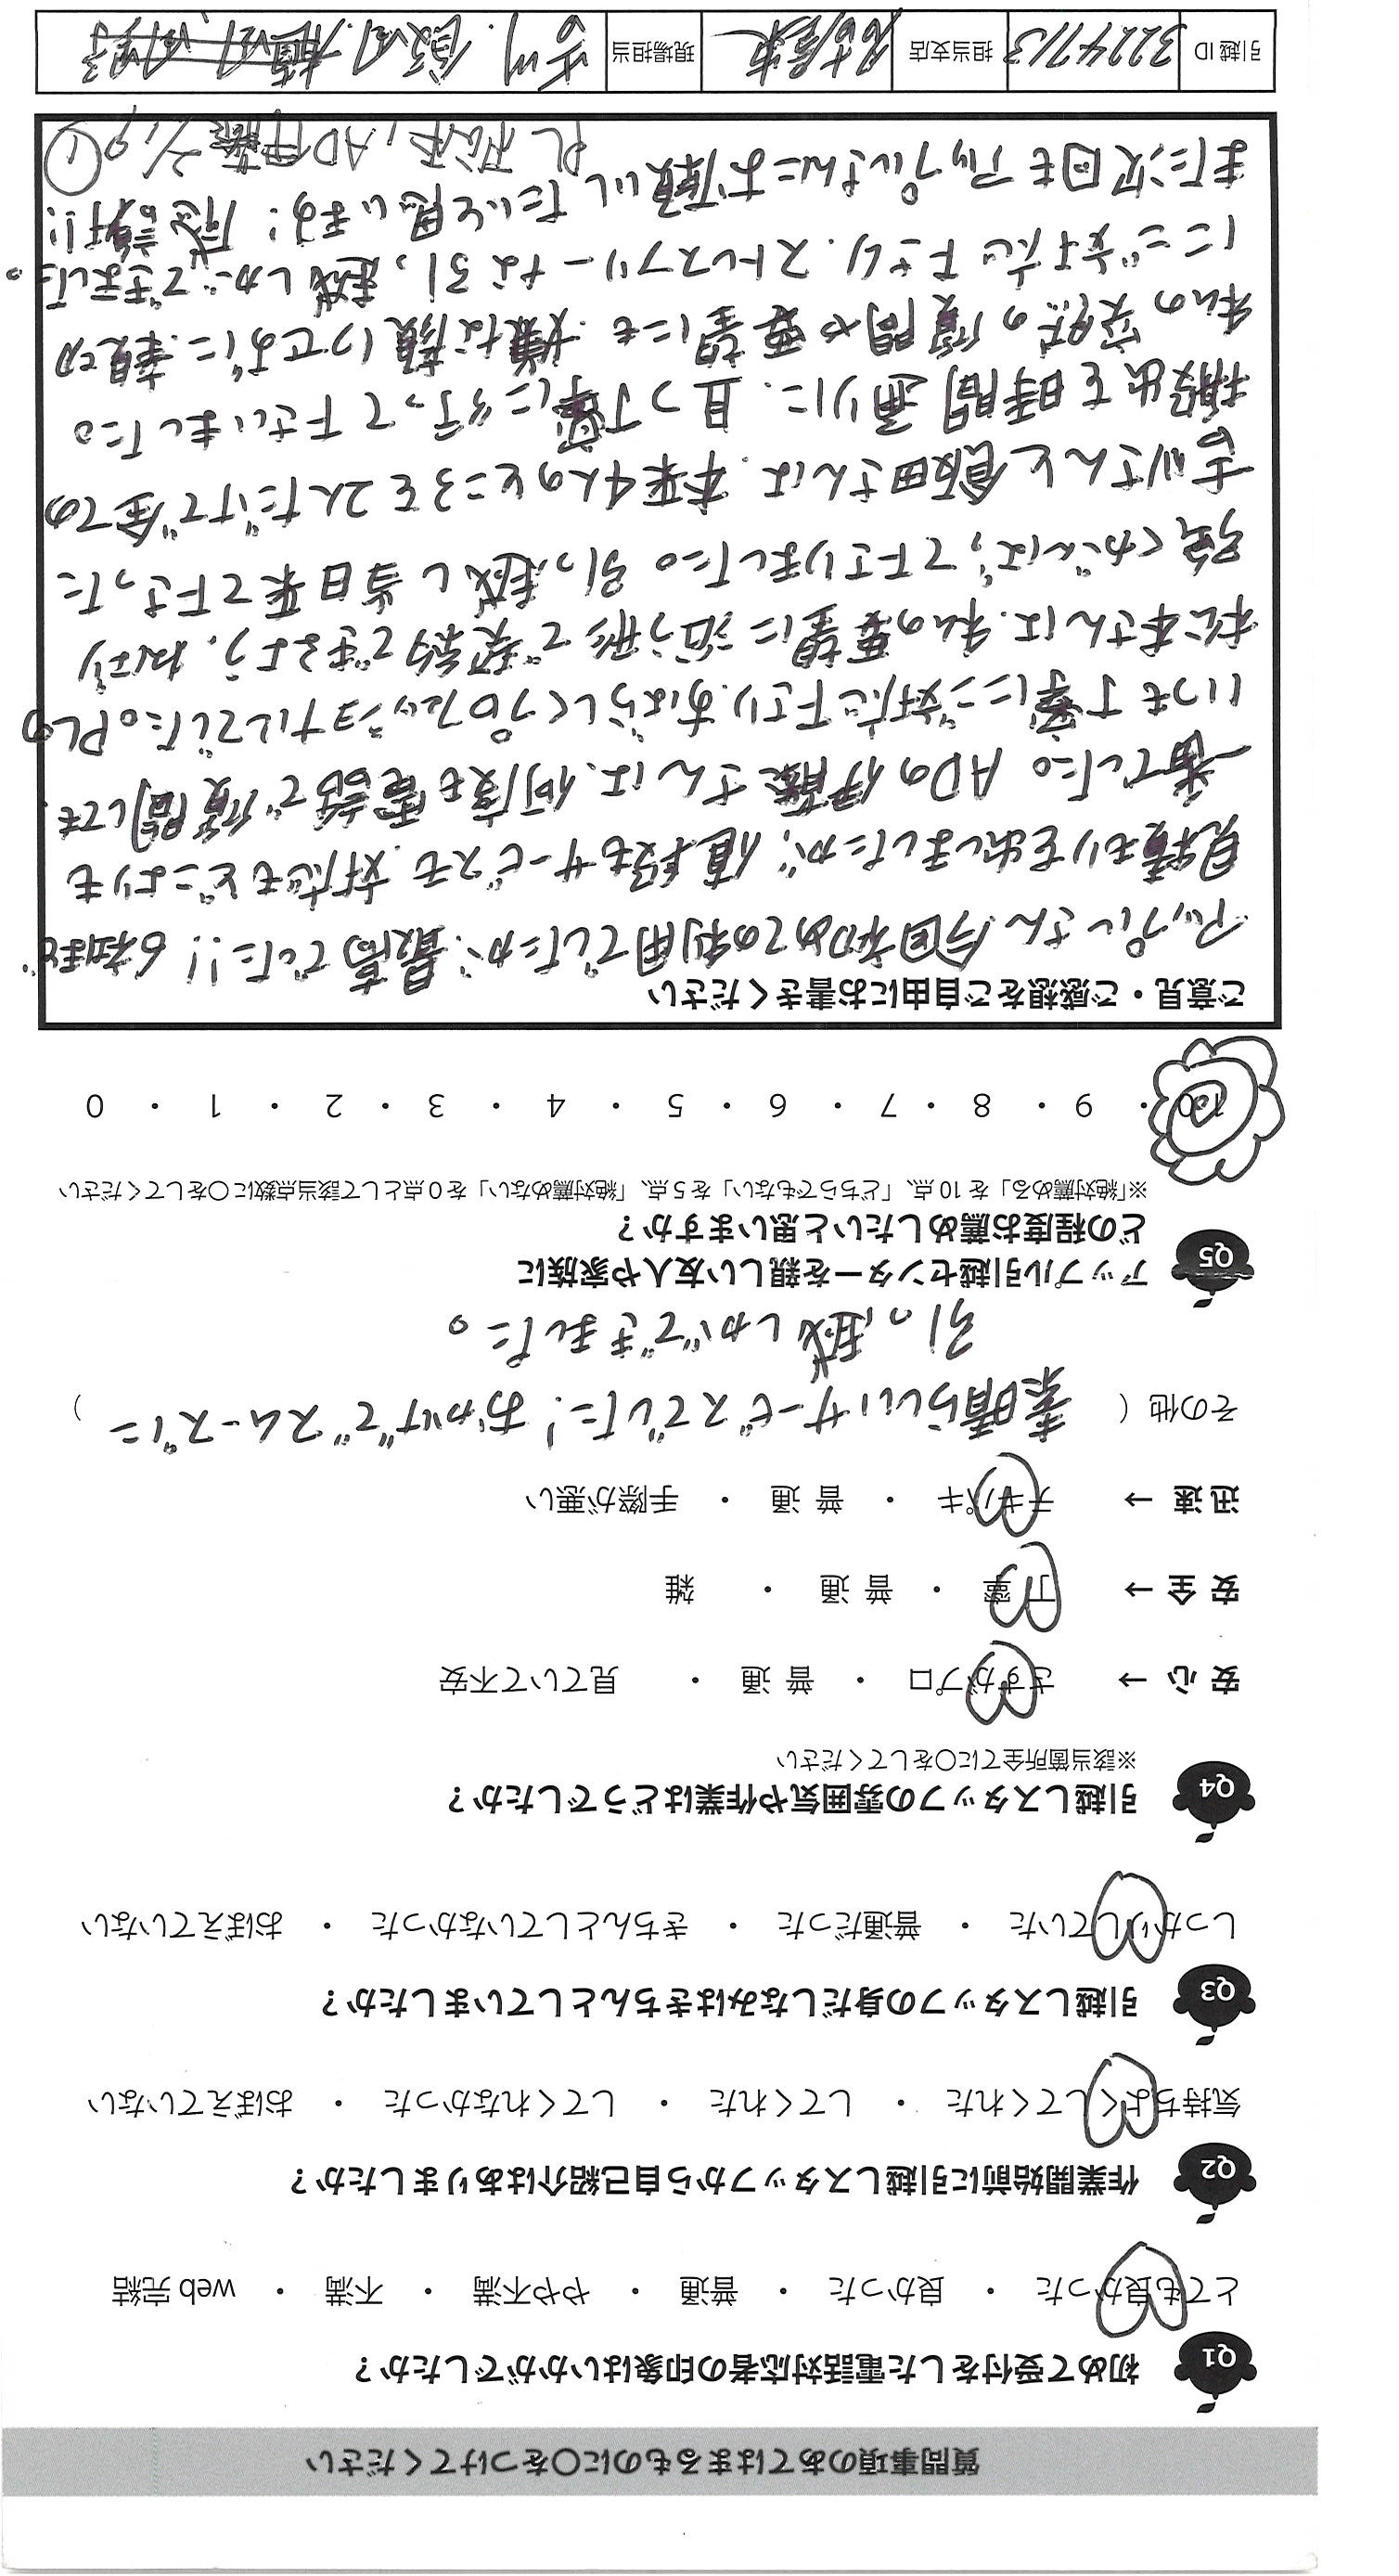 質問事項のあてはまるものに○をつけてください
Q1 初めて受付をした電話対応者の印象はいかがでしたか？
とても良かった ・ 良かった ・ 普通 ・ やや不満 ・ 不満 ・ web 完結
Q2 作業開始前に引越しスタッフから自己紹介はありましたか？
気持ちよくしてくれた ・ してくれた ・ してくれなかった ・ おぼえていない
Q3 引越しスタッフの身だしなみはきちんとしていましたか？
しっかりしていた ・ 普通だった ・ きちんとしていなかった ・ おぼえていない
Q4 引越しスタッフの雰囲気や作業はどうでしたか？
※該当箇所全てに○をしてください
安 心 → さすがプロ ・ 普 通 ・ 見ていて不安
安 全 → 丁 寧 ・ 普 通 ・ 雑
迅 速 → テキパキ ・ 普 通 ・ 手際が悪い
その他（ 素晴らしいサービスでした! おかげでスムーズに ）
引っ越しができました。
Q5 アップル引越センターを親しい友人や家族に
どの程度お薦めしたいと思いますか？
※「絶対薦める」を 10 点、「どちらでもない」を 5 点、「絶対薦めない」を 0 点として該当点数に○をしてください
10 ・ 9 ・ 8 ・ 7 ・ 6 ・ 5 ・ 4 ・ 3 ・ 2 ・ 1 ・ 0
ご意見・ご感想をご自由にお書きください
アップルさん今回初めての利用でしたが、最高でした!! 6社ほど
見積もりを出しましたが、値段もサービスも、対応もどこよりも
一番でした。ADの伊藤さんは、何度も電話で質問しても、
いつも丁寧にご対応下さり、すばらしくプロフェッショナルでした。PLの
松本さんは、私の要望に沿う形で契約できるよう、ねばり
強くがんばって下さりました。引っ越し当日来て下さった
吉川さんと飯田さんは、本来4人のところを2人だけで全ての
搬出を時間通りに、且つ丁寧に行って下さいました。
私の突然の質問や要望にも、嫌な顔1つせずに、親切
にご対応下さり、ストレスフリーな引っ越しができました。
また次回もアップルさんにお願いしたいと思います! 感謝!!
PL 松本, AD伊藤 2/19 ①
引越 ID 3224713 担当支店 名古屋東 現場担当 吉川、飯田